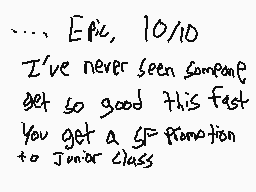 .... Epic, 10/10
I've never seen someone
get so good this fast
You get a SF promotion
to Junior Class